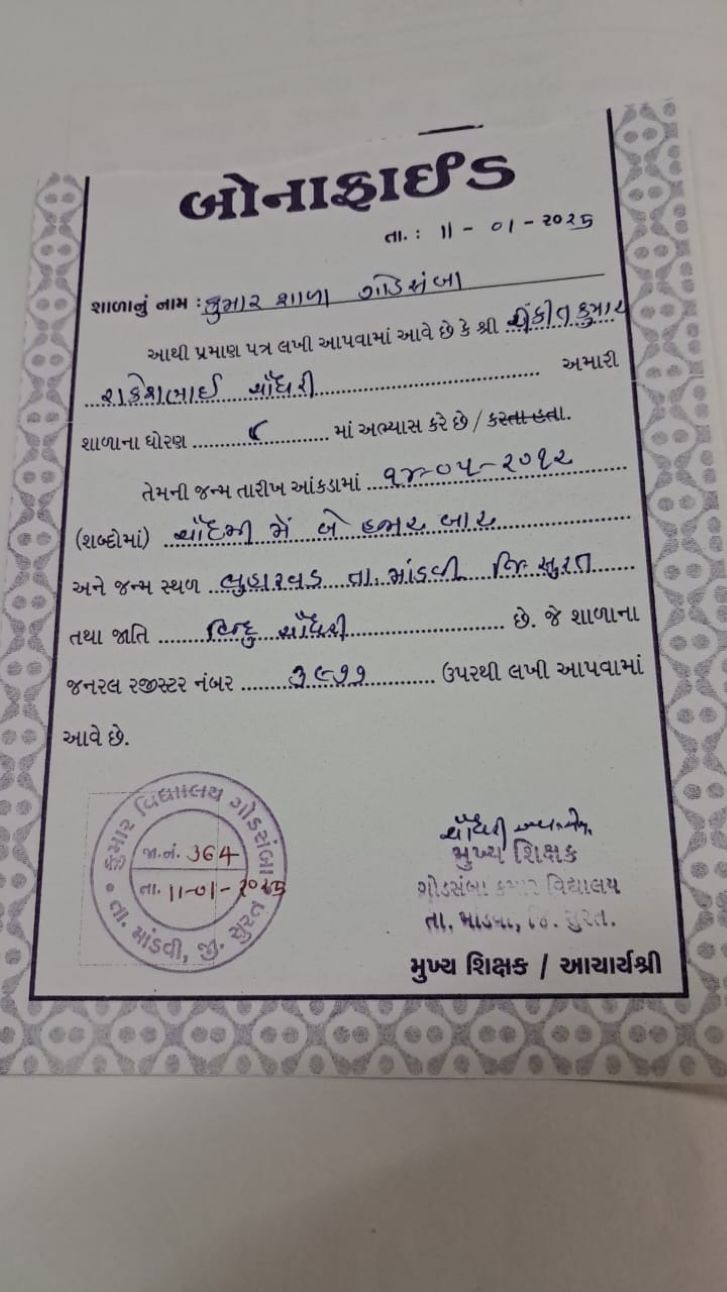 બોનાફાઈડ
તા. : 11 - 01 - ૨૦૨5
શાળાનું નામ : કુમાર શાળા ગોડસંબા
આથી પ્રમાણ પત્ર લખી આપવામાં આવે છે કે શ્રી અંકીતકુમાર
રાકેશભાઈ ચૌધરી અમારી
શાળાના ધોરણ ૮ માં અભ્યાસ કરે છે / કરતા હતા.
તેમની જન્મ તારીખ આંકડામાં ૧૪-૦૫-૨૦૧૨
(શબ્દોમાં) ચૌદમી મે બે હજાર બાર
અને જન્મ સ્થળ લુહારવડ તા. માંડવી જિ. સુરત
તથા જાતિ હિન્દુ ચૌધરી છે. જે શાળાના
જનરલ રજીસ્ટર નંબર ૩૯૧૧ ઉપરથી લખી આપવામાં
આવે છે.
કુમાર વિદ્યાલય ગોડસંબા
જા.નં. 364
તા. 11-01-૨૦૨5
તા. માંડવી, જી. સુરત
ચૌધરી
મુખ્ય શિક્ષક
ગોડસંબા કુમાર વિદ્યાલય
તા. માંડવી, જિ. સુરત.
મુખ્ય શિક્ષક / આચાર્યશ્રી